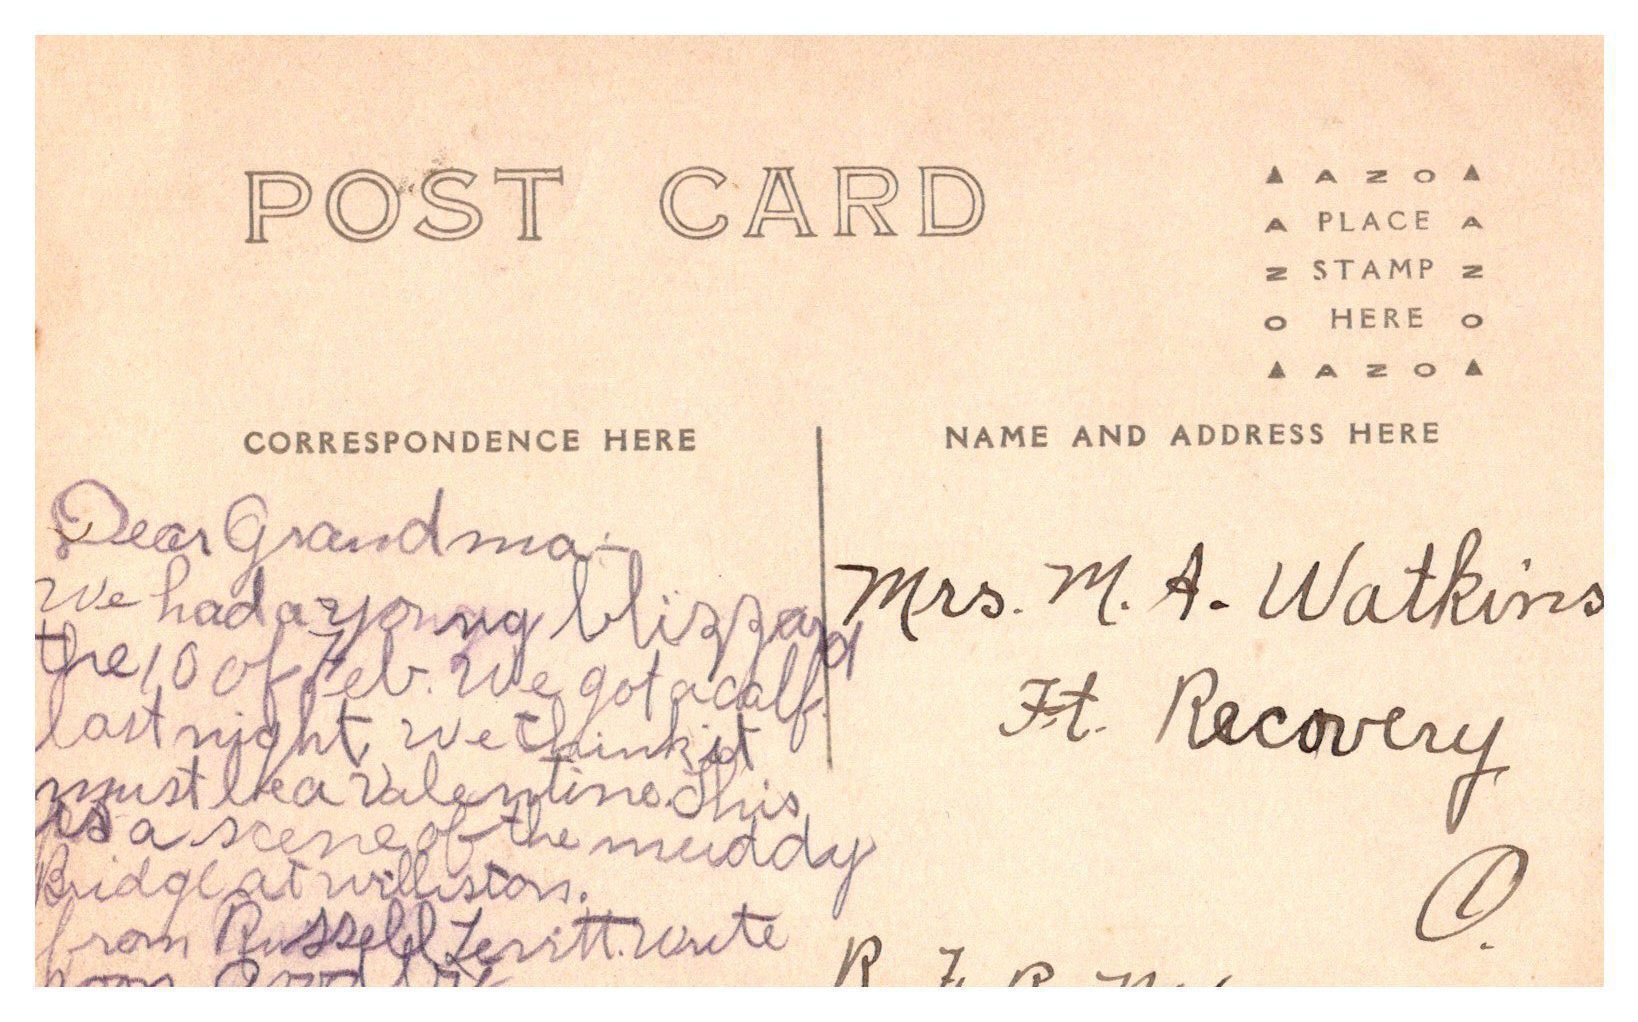 POST CARD
▲ A Z O ▲
A PLACE A
Z STAMP Z
O HERE O
▲ A Z O ▲
CORRESPONDENCE HERE
NAME AND ADDRESS HERE
Dear Grandma:-
We had a young blizzard
the 10 of Feb. We got a calf
last night, we think it
must be a valentine. This
is a scene of the muddy
Bridge at williston.
from Russell write
soon Good bye
Mrs. M. A. Watkins
Ft. Recovery
O.
R. F. R.